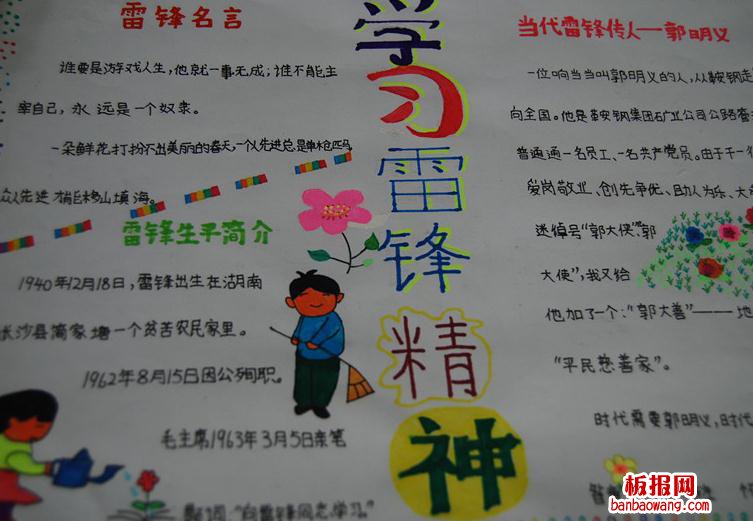 雷锋名言
谁要是游戏人生，他就一事无成；谁不能主
宰自己，永远是一个奴隶。
一朵鲜花打扮不出美丽的春天，一个人先进总是单枪匹马，
众人先进才能移山填海。
雷锋生平简介
1940年12月18日，雷锋出生在湖南
长沙县简家塘一个贫苦农民家里。
1962年8月15日因公殉职。
毛主席1963年3月5日亲笔
题词“向雷锋同志学习。”
学习雷锋精神
当代雷锋传人——郭明义
一位响当当叫郭明义的人，从鞍钢走
向全国。他是鞍钢集团矿业公司公路
普普通通一名员工、一名共产党员。由于
爱岗敬业、创先争优、助人为乐、大
送绰号“郭大侠”、郭
大使”，我又给
他加了一个：“郭大善”——
“平民慈善家”。
时代需要郭明义，时代
板报网
banbaowang.com